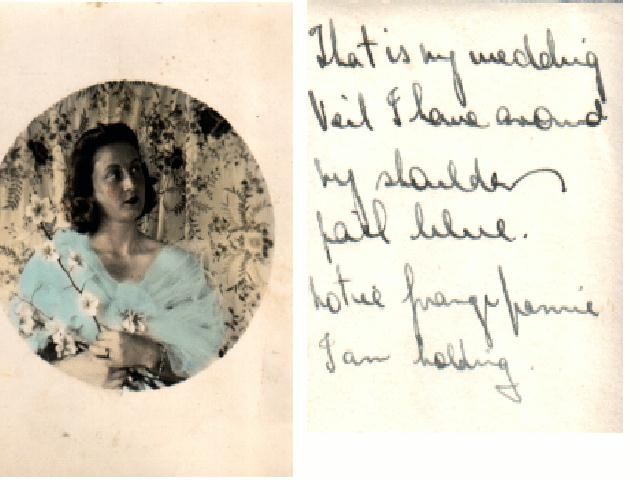 That is my wedding
Veil I have around
my shoulders
pail blue.
Notice frangipannie
I am holding.